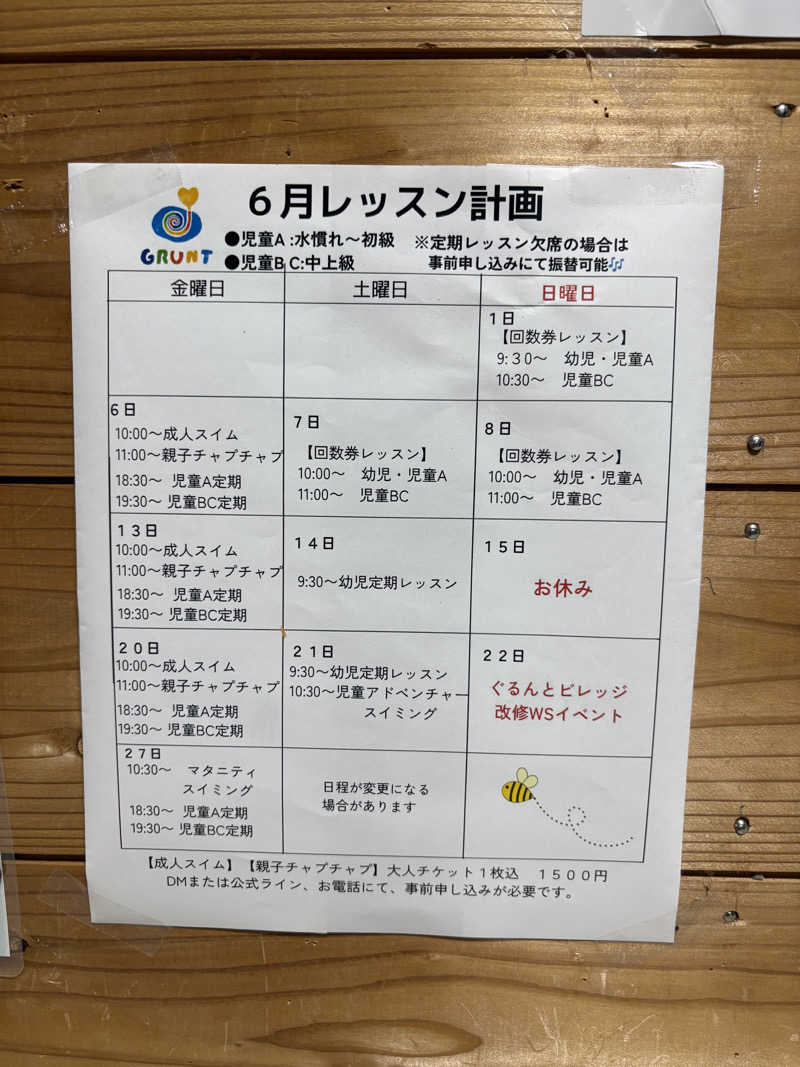 6月レッスン計画
GRUNT
●児童A:水慣れ〜初級
●児童B C:中上級
※定期レッスン欠席の場合は
事前申し込みにて振替可能🎶
金曜日 土曜日 日曜日
1日
【回数券レッスン】
9:30〜 幼児・児童A
10:30〜 児童BC
6日
10:00〜成人スイム
11:00〜親子チャプチャプ
18:30〜 児童A定期
19:30〜 児童BC定期
7日
【回数券レッスン】
10:00〜 幼児・児童A
11:00〜 児童BC
8日
【回数券レッスン】
10:00〜 幼児・児童A
11:00〜 児童BC
13日
10:00〜成人スイム
11:00〜親子チャプチャプ
18:30〜 児童A定期
19:30〜 児童BC定期
14日
9:30〜幼児定期レッスン
15日
お休み
20日
10:00〜成人スイム
11:00〜親子チャプチャプ
18:30〜 児童A定期
19:30〜 児童BC定期
21日
9:30〜幼児定期レッスン
10:30〜児童アドベンチャー
スイミング
22日
ぐるんとビレッジ
改修WSイベント
27日
10:30〜 マタニティ
スイミング
18:30〜 児童A定期
19:30〜 児童BC定期
日程が変更になる
場合があります
【成人スイム】【親子チャプチャプ】大人チケット1枚込 1500円
DMまたは公式ライン、お電話にて、事前申し込みが必要です。